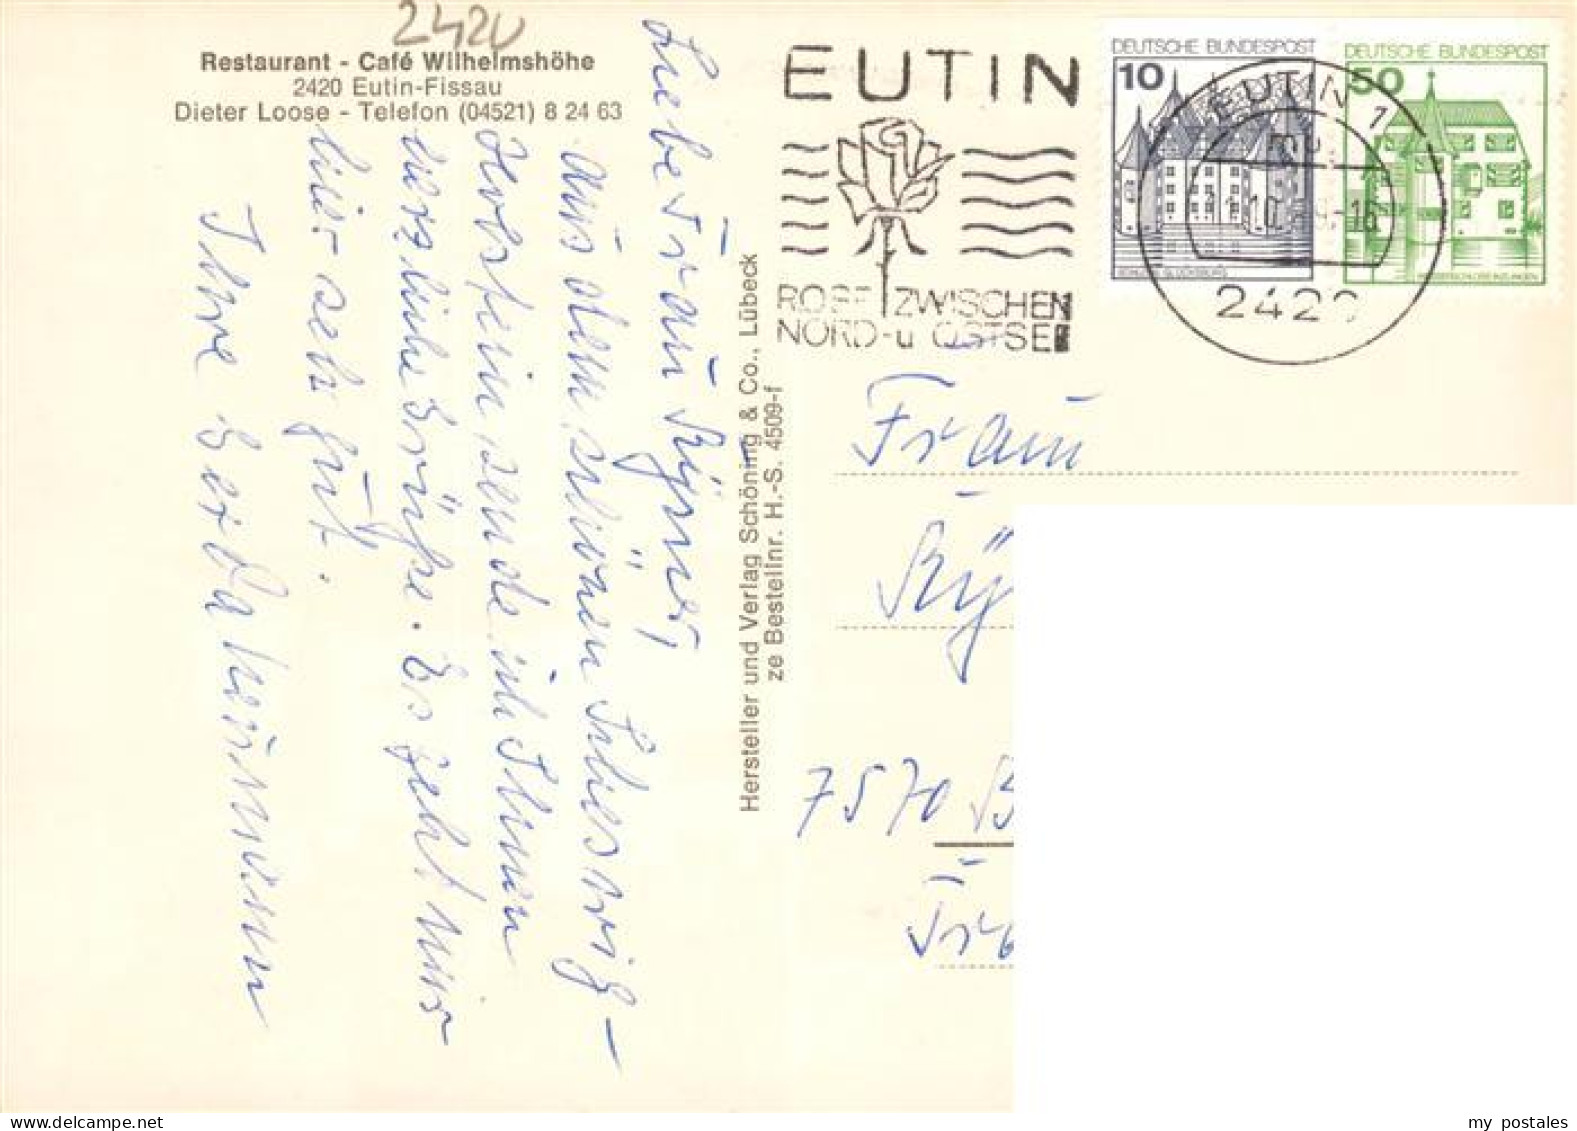 2420
Restaurant - Café Wilhelmshöhe
2420 Eutin-Fissau
Dieter Loose - Telefon (04521) 8 24 63
Liebe Frau
aus dem schönen Schleswig-
Holstein sende ich Ihnen
herzliche Grüße. Es geht mir
hier sehr gut.
Ihre Gerda
Hersteller und Verlag Schöning & Co., Lübeck
ze Bestellnr. H.-S. 4509-f
EUTIN
ROSE ZWISCHEN
NORD-u OSTSEE
DEUTSCHE BUNDESPOST
10
SCHLOSS GLÜCKSBURG
DEUTSCHE BUNDESPOST
50
EUTIN 1
-16
242
Frau
7570 B
my postales